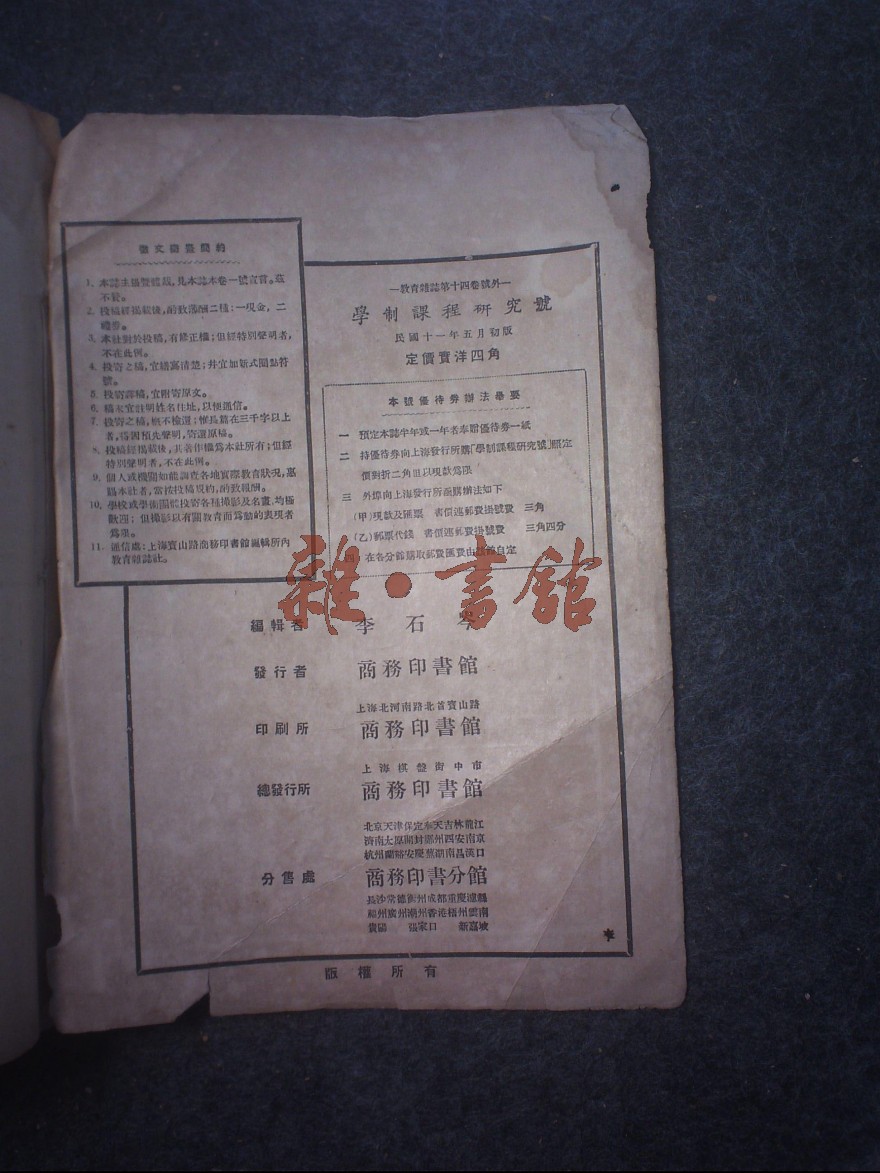 徵文徵畫簡約
1. 本誌主張暨體裁,見本誌本卷一號宣言。茲
不贅。
2. 投稿經揭載後,酌致薄酬二種:一現金,二
禮券。
3. 本社對於投稿,有修正權;但經特別聲明者,
不在此例。
4. 投寄之稿,宜繕寫清楚;幷宜加新式圈點符
號。
5. 投寄譯稿,宜附寄原文。
6. 稿末宜註明姓名住址,以便通信。
7. 投寄之稿,槪不檢還;惟長篇在三千字以上
者,得因預先聲明,寄還原稿。
8. 投稿經揭載後,其著作權爲本社所有;但經
特別聲明者,不在此例。
9. 個人或機關如能調查各地實際敎育狀況,惠
賜本社者,當按投稿規約,酌致報酬。
10. 學校或學術團體投寄各種撮影及名畫,均極
歡迎;但撮影以有關敎育而爲動的表現者
爲限。
11. 通信處:上海寶山路商務印書館編輯所內
敎育雜誌社。
—敎育雜誌第十四卷號外—
學制課程研究號
民國十一年五月初版
定價實洋四角
本號優待券辦法舉要
一 預定本誌半年或一年者奉贈優待券一紙
二 持優待券向上海發行所購「學制課程研究號」照定
價對折二角但以現款爲限
三 外埠向上海發行所函購辦法如下
(甲)現款及匯票 書價連郵費掛號費 三角
(乙)郵票代錢 書價連郵費掛號費 三角四分
四 在各分館購取郵費匯費由該館自定
雜·書館
編輯者 李石岑
發行者 商務印書館
上海北河南路北首寶山路
印刷所 商務印書館
上海棋盤街中市
總發行所 商務印書館
北京天津保定奉天吉林龍江
濟南太原開封鄭州西安南京
杭州蘭谿安慶蕪湖南昌漢口
分售處 商務印書分館
長沙常德衡州成都重慶瀘縣
福州廣州潮州香港梧州雲南
貴陽 張家口 新嘉坡
版權所有